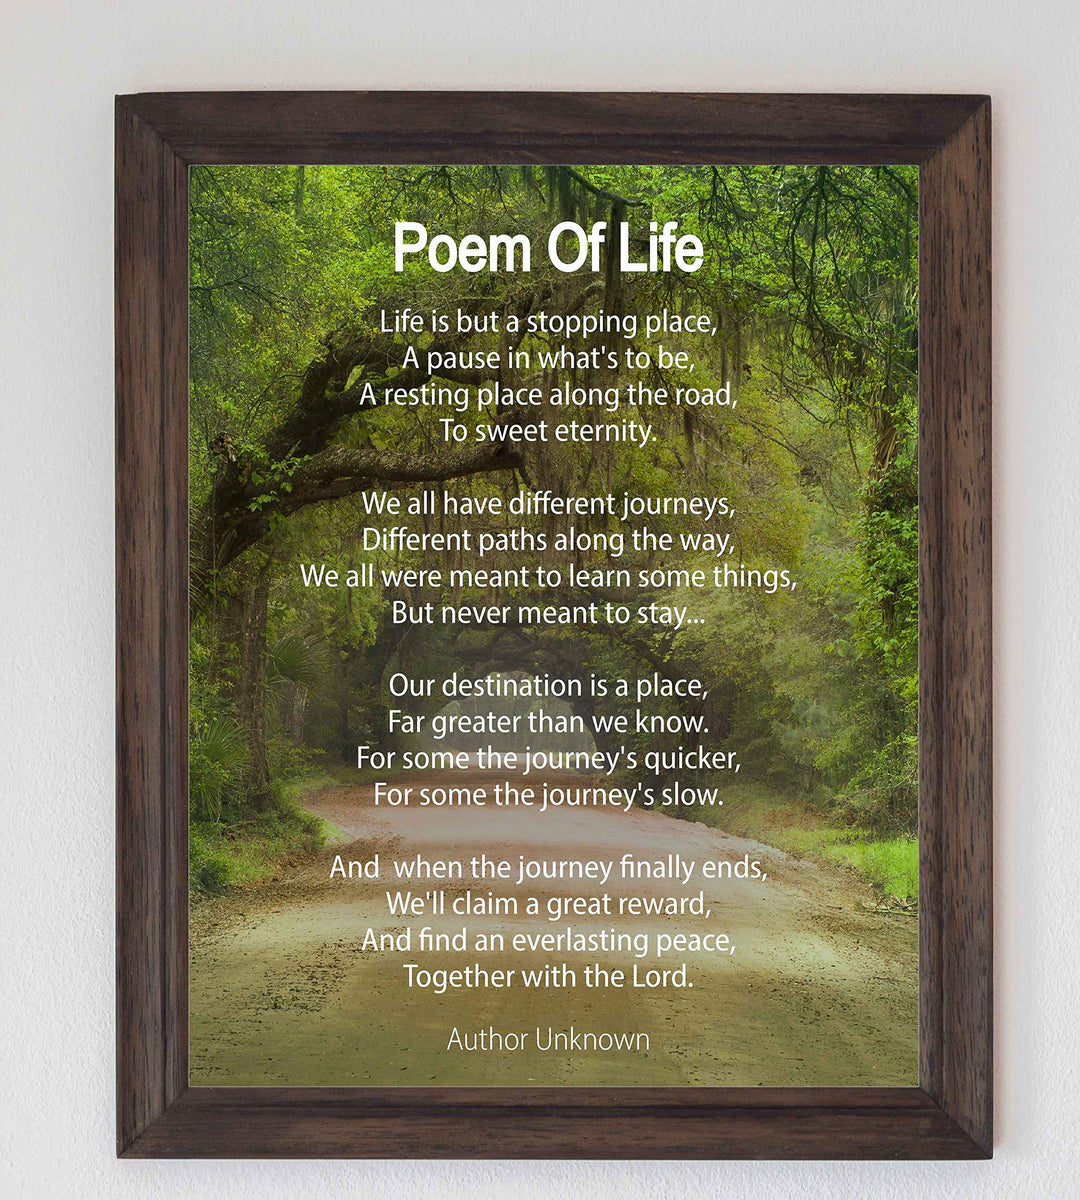 Poem Of Life
Life is but a stopping place,
A pause in what's to be,
A resting place along the road,
To sweet eternity.
We all have different journeys,
Different paths along the way,
We all were meant to learn some things,
But never meant to stay...
Our destination is a place,
Far greater than we know.
For some the journey's quicker,
For some the journey's slow.
And  when the journey finally ends,
We'll claim a great reward,
And find an everlasting peace,
Together with the Lord.
Author Unknown